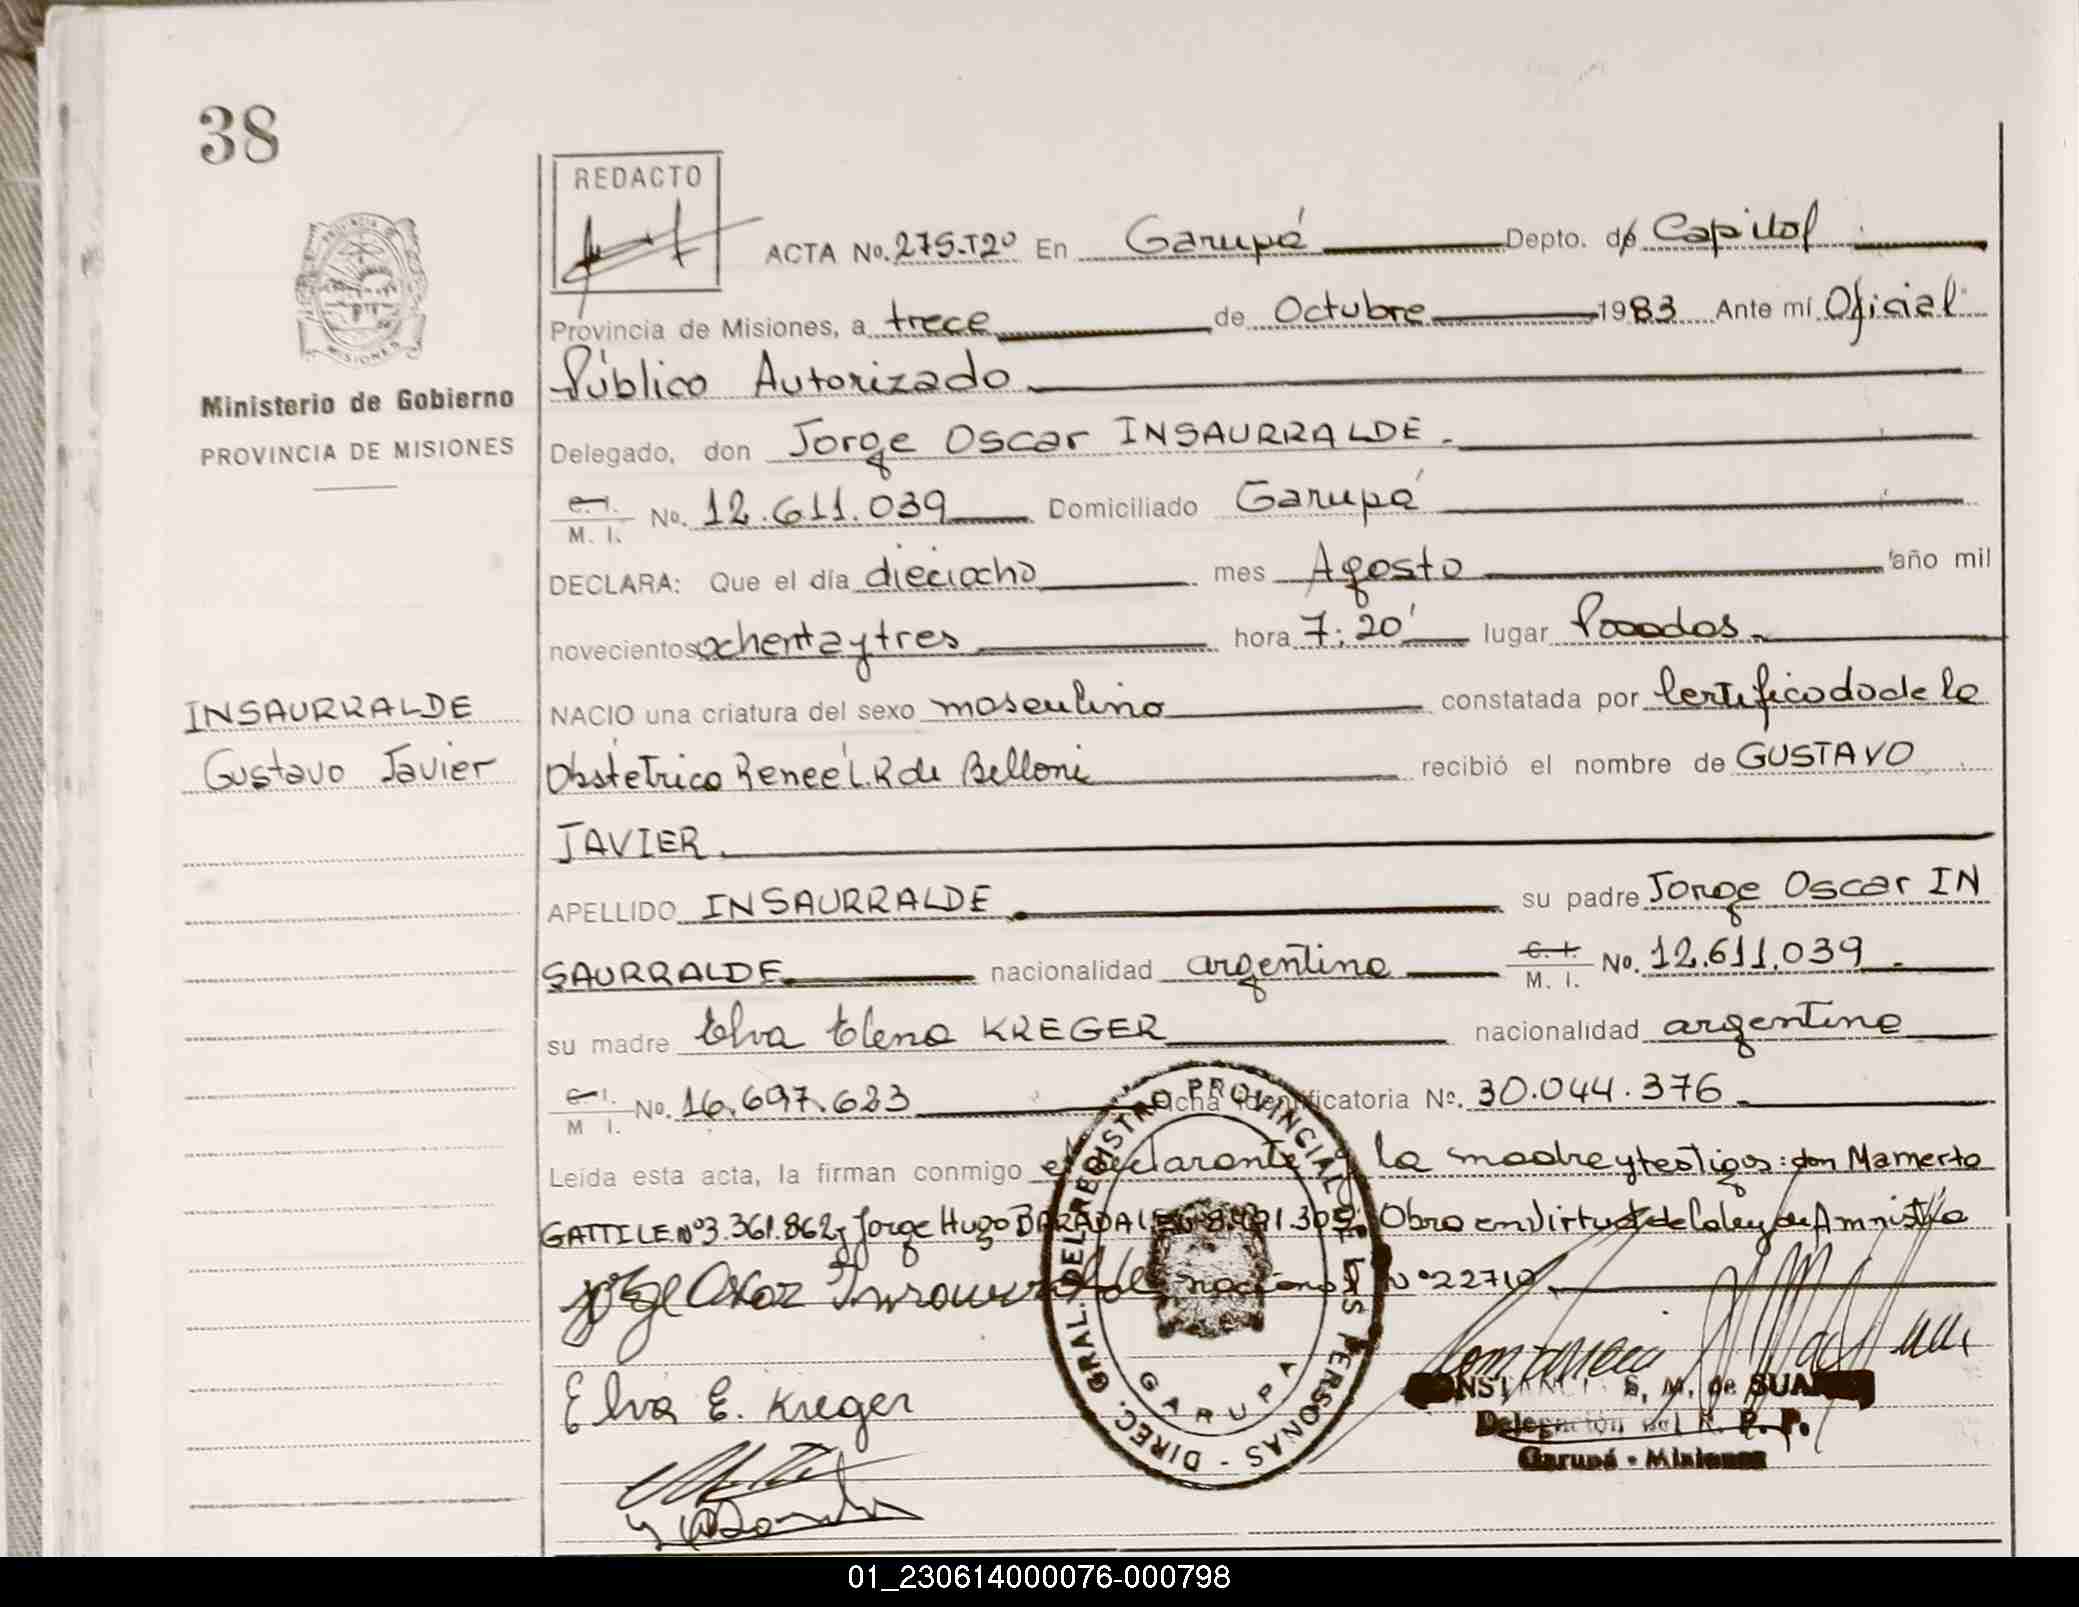 38
REDACTO
ACTA No. 275-T2º En Garupá Depto. de Capital
Provincia de Misiones, a trece de Octubre 1983 Ante mí Oficial
Público Autorizado
Delegado, don Jorge Oscar INSAURRALDE.
C. I.
M. I. No. 12.611.039 Domiciliado Garupá
DECLARA: Que el día dieciocho mes Agosto año mil
novecientos ochenta y tres hora 7:20' lugar Posadas
NACIO una criatura del sexo masculino constatada por Certificado de la
Obstetrica Reneé L. R de Belloni recibió el nombre de GUSTAVO
JAVIER
APELLIDO INSAURRALDE su padre Jorge Oscar IN
SAURRALDE nacionalidad argentina C. I.
M. I. No. 12.611.039
su madre Elva Elena KREGER nacionalidad argentina
C. I.
M I. No. 16.697.623 Ficha Identificatoria Nº. 30.044.376
Leída esta acta, la firman conmigo el declarante y la madre y testigos: don Mamerto
GATTI LE Nº 3.361.862 y Jorge Hugo Obra en virtud de la ley de Amnistía
nacional Nº 22710
Jorge Oscar Insaurralde
Elva E. Kreger
MISIONES
Ministerio de Gobierno
PROVINCIA DE MISIONES
INSAURRALDE
Gustavo Javier
DIREC. GRAL. DEL REGISTRO PROVINCIAL DE LAS PERSONAS -
GARUPA
S. M. de
Delegación del R. P. P.
Garupá - Misiones
01_230614000076-000798